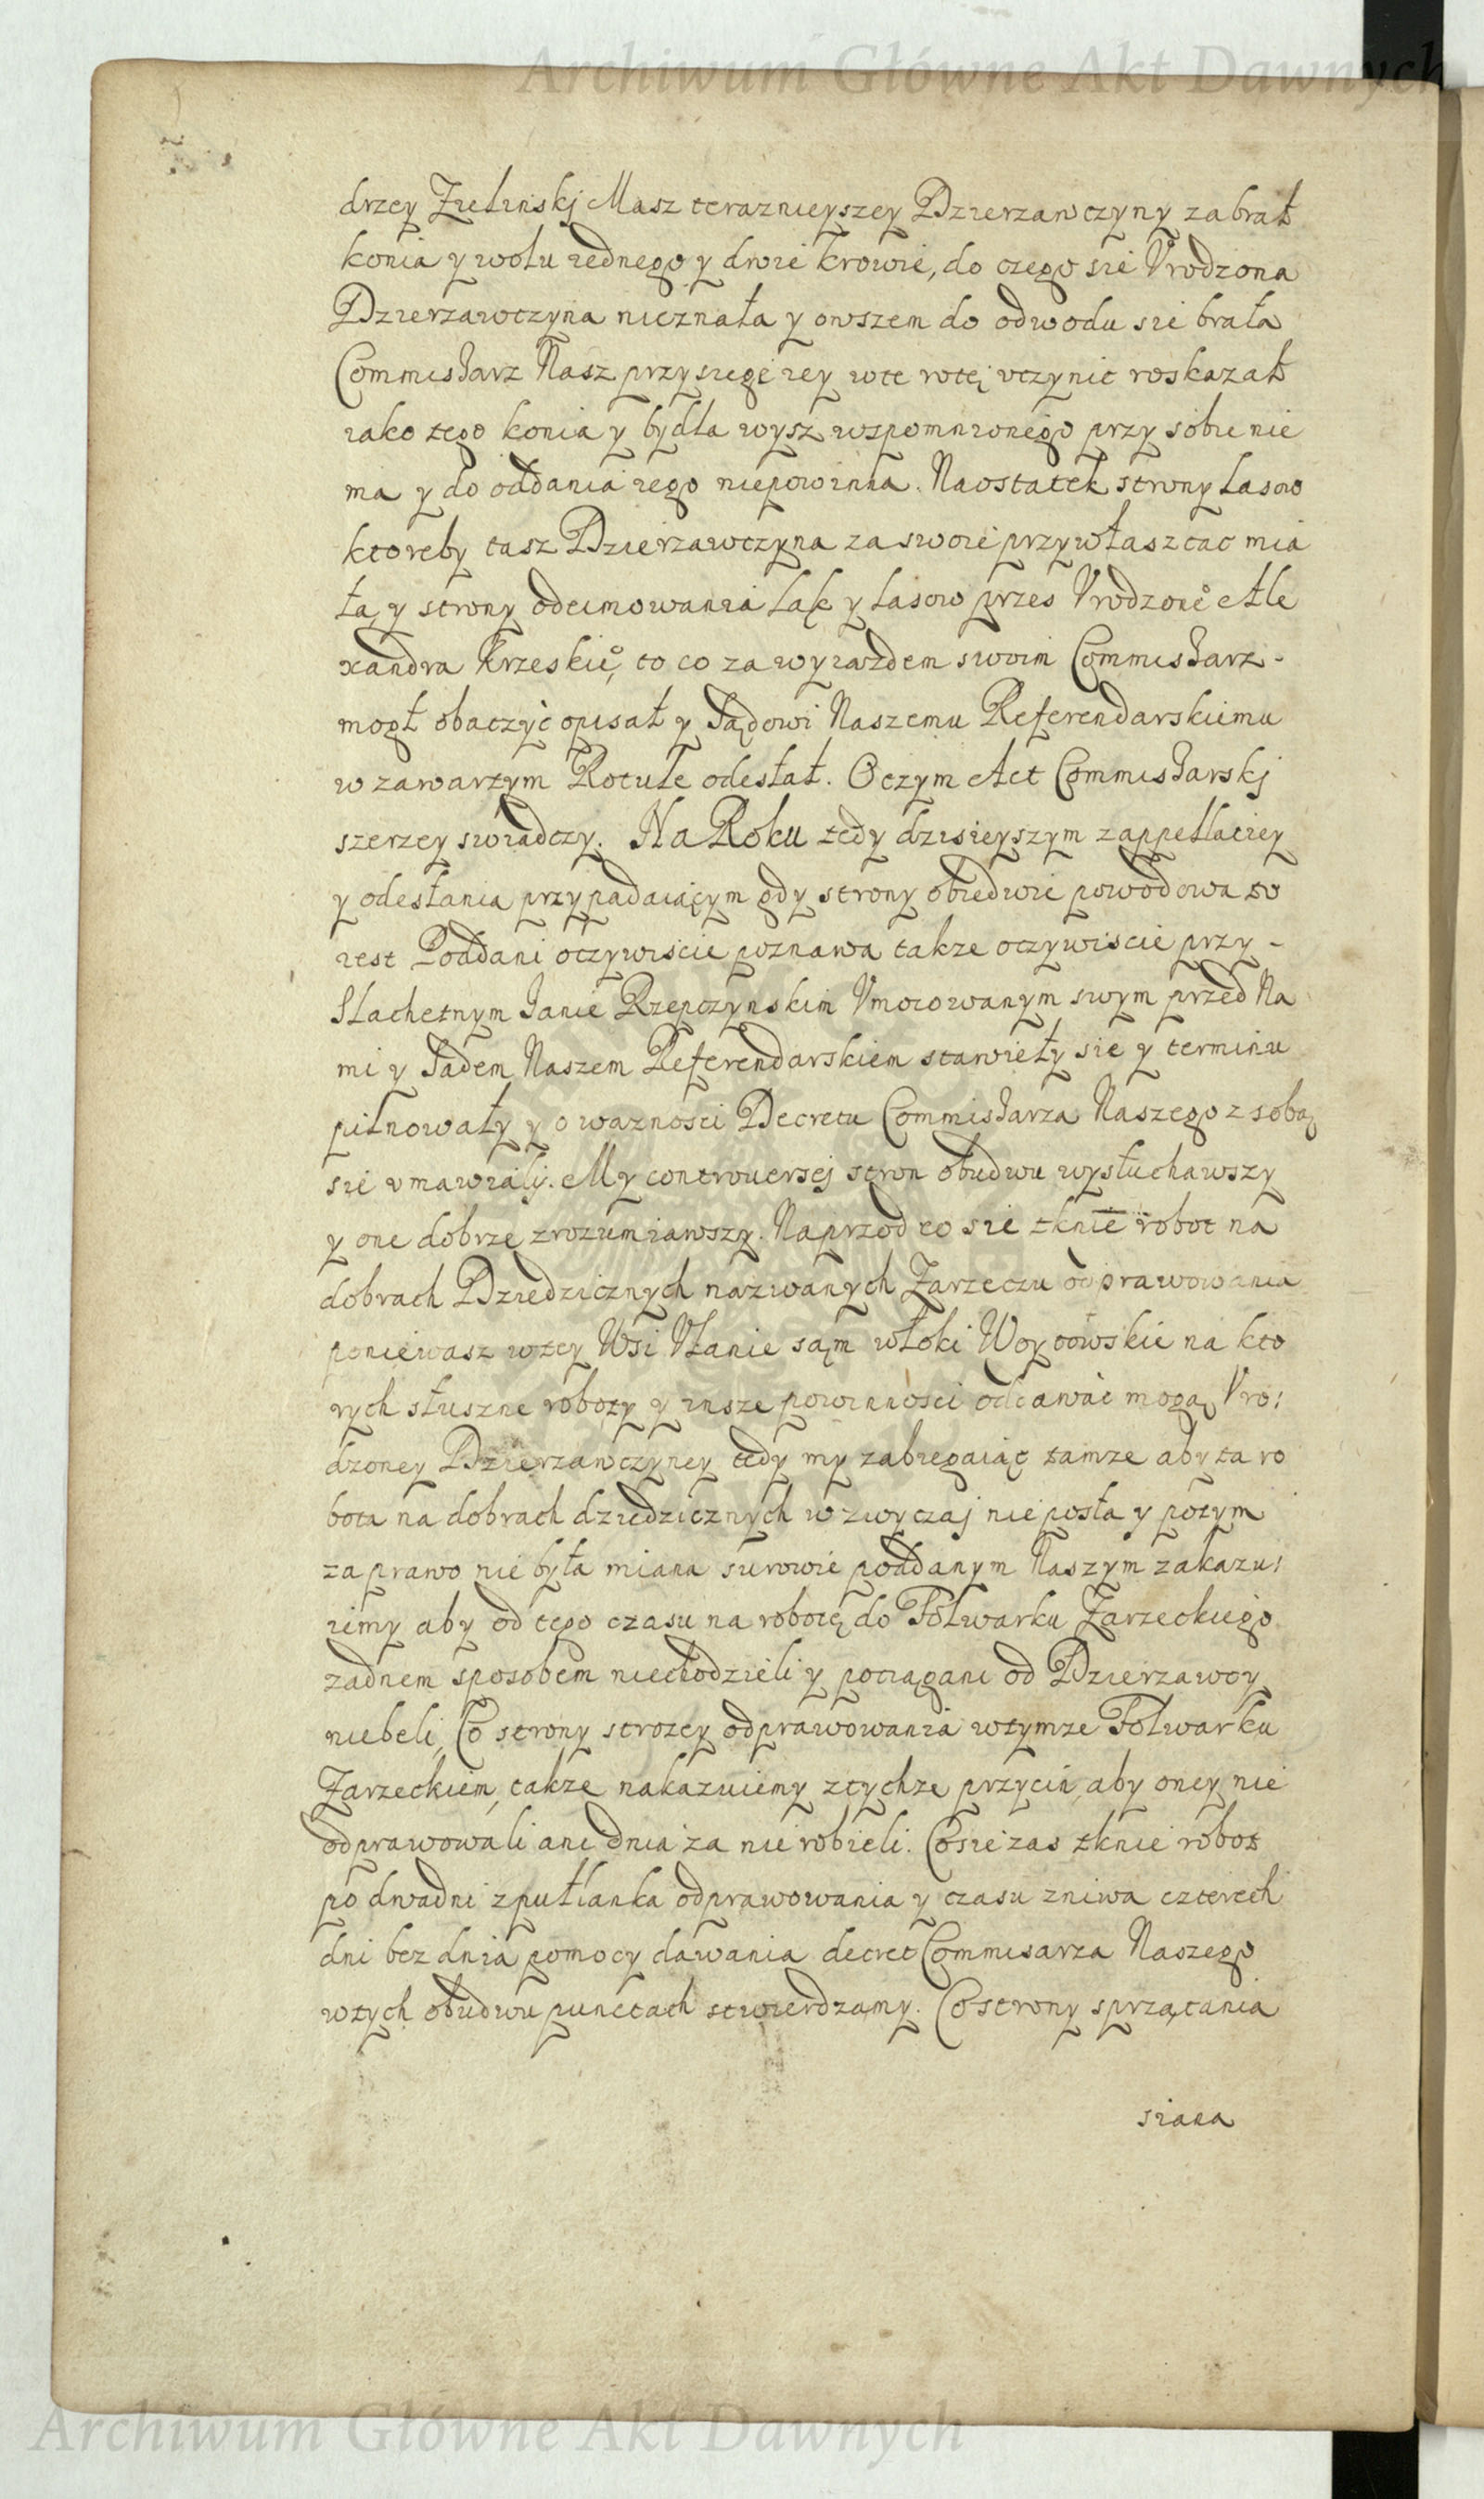 Archiwum Główne Akt Dawnych
drzey Zielinskj Masz teraznieyszey Dzierzawczyny zabrał
konia y wołu iednego y dwie krowie, do czego sie Vrodzona
Dzierzawczyna nieznała y owszem do odwodu sie brała
Commissarz Nasz przysiegę iey wte rotę vczynic roskazał
iako tego konia y bydła wysz wspomnionego przy sobie nie
ma y do oddania iego niepowinna. Naostatek strony Lasow
ktoreby tasz Dzierzawczyna za swoie przywłaszcac mia
ła y strony odeimowania Ląk y Lasow przes Vrodzone° Ale
xandra Krzeskie°, to co za wyiazdem swoim Commissarz -
mogł obaczyć opisał y Sądowi Naszemu Referendarskiemu
w zawartym Rotule odesłał. O czym Act Commissarskj
szerzey swiadczy. Na Roku tedy dzisieyszym z appellaciey
y odesłania przypadaiącym gdy strony obiedwie powodowa to
iest Poddani oczywiscie poznawa takze oczywiscie przy -
Slachetnym Janie Rzepczynskim Vmocowanym swym przed Na
mi y Sadem Naszem Referendarskiem stawieły sie y terminu
pilnowały y o waznosci Decretu Commissarza Naszego z sobą
sie vmawiały. My controuersej stron obudwu wysłuchawszy
y one dobrze zrozumiawszy. Naprzod co sie tknie robot na
dobrach Dziedzicznych nazwanych Zarzeczu odprawowania
poniewasz wtey Wsi Vłanie sąm włoki Woytowskie na kto
rych słuszne roboty y insze powinnosci oddawać mogą Vro:
dzoney Dzierzawczyney tedy my zabiegaiąc tamze aby ta ro
bota na dobrach dziedzicznych w zwyczaj nie posła y potym
za prawo nie była miana surowie poddanym Naszym zakazu:
iemy aby od tego czasu na robotę do Folwarku Zarzeckiego
zadnem sposobem niechodzieli y pociągani od Dzierzawcy
niebeli, Co strony strozey odprawowania wtymze Folwarku
Zarzeckiem, takze nakazuiemy ztychze przyciń aby oney nie
odprawowali ani dnia za nie robieli. Co sie zas tknie robot
po dwadni zpułłanka odprawowania y czasu zniwa czterech
dni bez dnia pomocy dawania decret Commisarza Naszego
wtych obudwu punctach stwierdzamy. Co strony sprzątania
siana
Archiwum Główne Akt Dawnych